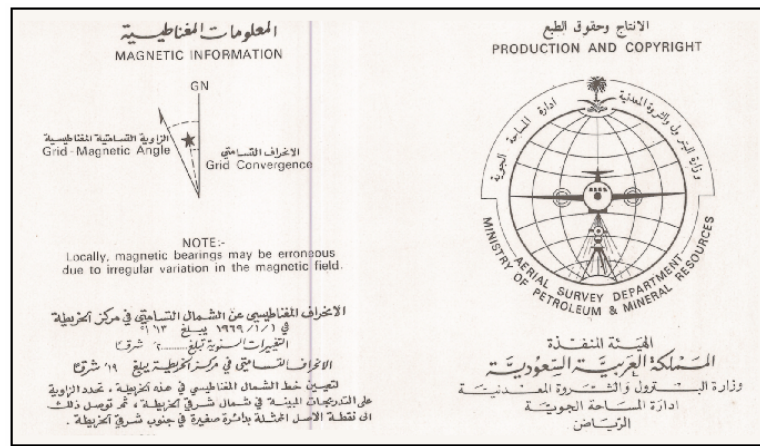 المعلومات المغناطيسية
MAGNETIC INFORMATION
GN
الزاوية التسامتية المغناطيسية
Grid-Magnetic Angle
الانحراف التسامتي
Grid Convergence
NOTE:-
Locally, magnetic bearings may be erroneous
due to irregular variation in the magnetic field.
الانحراف المغناطيسي عن الشمال التسامتي في مركز الخريطة
في ١٩٦٩/١/١ يبلغ
التغييرات السنوية تبلغ شرقًا
الانحراف التسامتي في مركز الخريطة يبلغ ١٩' شرقًا
لتعيين خط الشمال المغناطيسي في هذه الخريطة ، تحدد الزاوية
على التدريجات المبينة في شمال شرقي الخريطة ، ثم توصل ذلك
الى نقطة الاصل الممثلة بدائرة صغيرة في جنوب شرقي الخريطة .
الانتاج وحقوق الطبع
PRODUCTION AND COPYRIGHT
وزارة البترول والثروة المعدنية
ادارة المساحة الجوية
AERIAL SURVEY DEPARTMENT
MINISTRY OF PETROLEUM & MINERAL RESOURCES
الهيئة المنفذة
المملكة العربية السعودية
وزارة البترول والثروة المعدنية
ادارة المساحة الجوية
الرياض